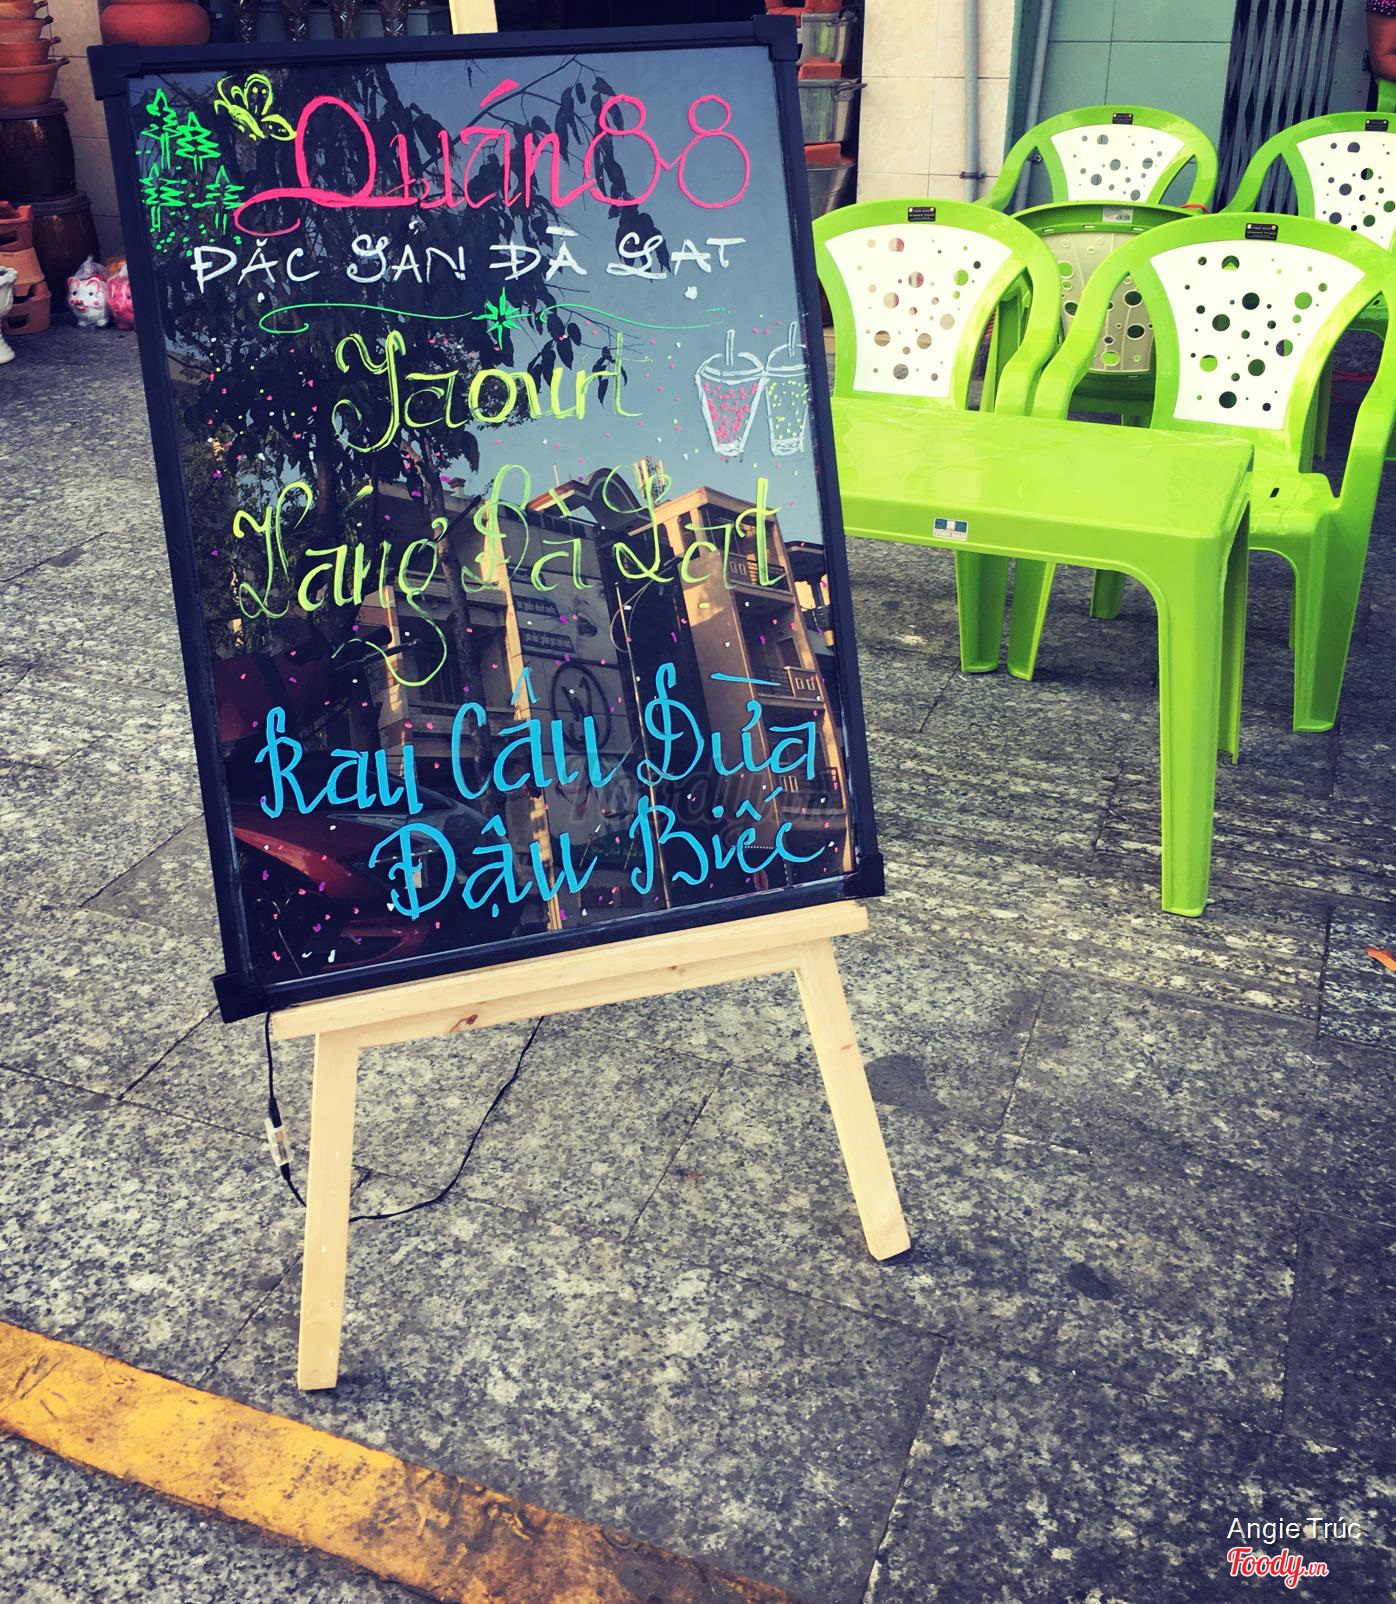 Quán 88
ĐẶC SẢN ĐÀ LẠT
Yaourt
Láng Đà Lạt
Rau Câu Dừa
Đậu Biếc
Angie Trúc
Foody.vn